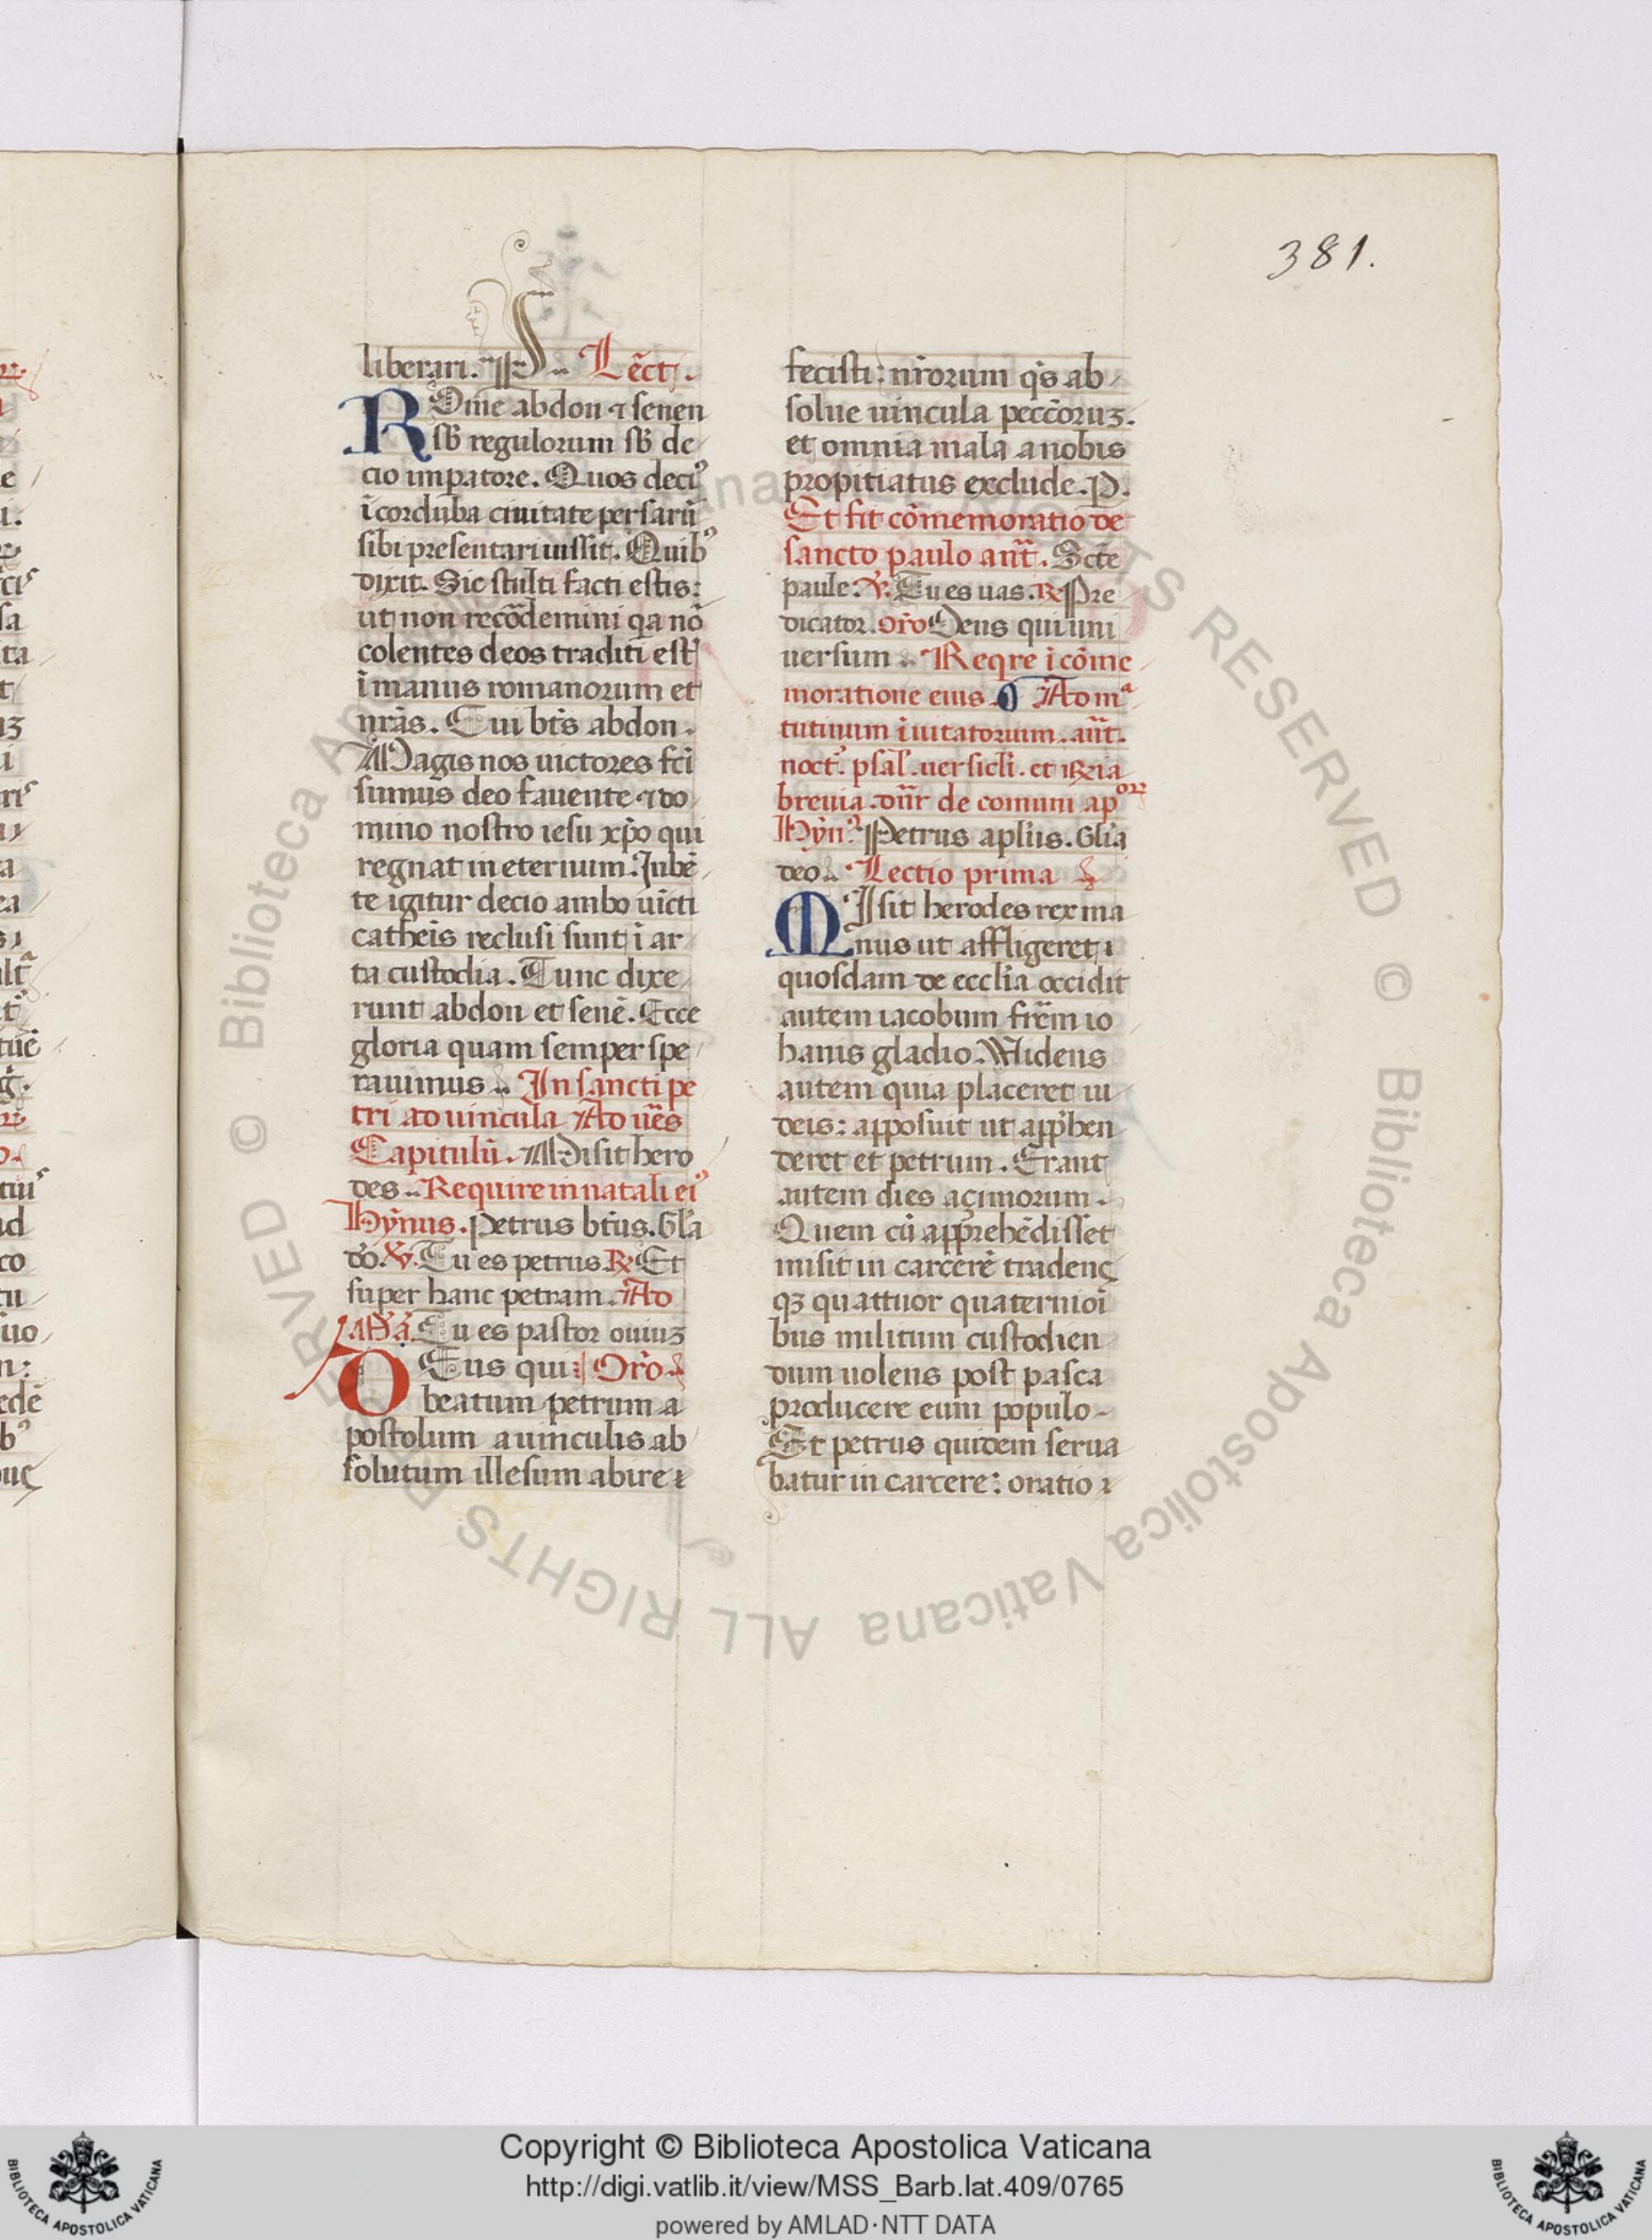 381.
liberari. P .. Lect̄.
ROme abdon ⁊ senen
sb̄ regulorum sb̄ de
cio imꝑatore. Quos deciꝰ
ī corduba ciuitate persarū
sibi presentari iussit. Quibꝰ
dixit. Sic stulti facti estis:
ut non recōdemini q̄a nō
colentes deos traditi est̄
ī manus romanorum et
nr̄as. Cui bt̄s abdon.
Magis nos uictores fc̄i
sumus deo fauente ⁊ do
mino nostro iesu xp̄o qui
regnat in eternum. Jubē
te igitur decio ambo uīcti
cathēis reclusi sunt ī ar
ta custodia. Tunc dixe
runt abdon et senē. Ecce
gloria quam semper spe
rauimus .. In sancti pe
tri ad uincula Ad ūes
Capitulū. Misit hero
des .. Require in natali eiꝰ
Hȳnus. Petrus bt̄us. Gl̄a
dō. ℣. Tu es petrus ℞ Et
super hanc petram. Ad
Mā. Tu es pastor ouiuꝫ
DEus qui: Or̄o
beatum petrum a
postolum a uinculis ab
solutum illesum abire
fecisti: nr̄orum q̄s ab
solue uincula pecc̄oruꝫ.
et omnia mala a nobis
propitiatus exclude. P.
Et fit cōmemoratio de
sancto paulo an̄t. Sc̄te
paule. ℣. Tu es uas. ℞ Pre
dicator. or̄o Deus qui uni
uersum .. Reqͥre ī cōme
moratione eius. ¶ Ad mᵃ
tutinum īuitatorium. an̄t.
noct̄. psal̄. uersicl̄i. et ℞ria
breuia. dn̄r de comuni apͦꝝ
Hȳnꝰ. Petrus apl̄us. Gl̄ia
deo .. Lectio prima
MIsit herodes rex ma
nus ut affligeret
quosdam de eccl̄ia occidit
autem iacobum fr̄em io
hanis gladio. Uidens
autem quia placeret iu
deis: apposuit ut app̄hen
deret et petrum. Erant
autem dies açimorum.
Quem cū apprehēdisset
misit in carcerē tradenç
qꝫ quattuor quaternioī
bus militum custodien
dum uolens post pasca
producere eum populo
Et petrus quidem serua
batur in carcere: oratio
© Biblioteca Apostolica Vaticana ALL RIGHTS RESERVED
Copyright © Biblioteca Apostolica Vaticana
http://digi.vatlib.it/view/MSS_Barb.lat.409/0765
powered by AMLAD·NTT DATA
BIBLIOTECA APOSTOLICA VATICANA
BIBLIOTECA APOSTOLICA VATICANA